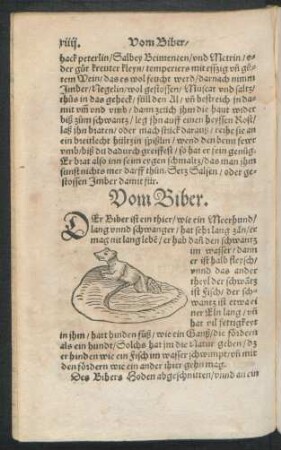 xiiij. Vom Biber/
hack peterlin/Salbey Beimenten/vnd Metrin/o-
der gůt kreuter kleyn/temperiers mit essig vñ gů-
tem Wein/das es wol feücht werd/darnach nimm
Imber/Negelin/wol gestossen/Muscat vnd saltz/
thůs in das geheck/füll den Al/vñ bestreich jn da-
mit vm̃ vnd vmb/dann zeüch jhm die haut wider
biß zům schwantz/leg jhn auff einen heyssen Rost/
laß jhn braten/oder mach stück darauß/reihe sie an
ein breitlecht hültzin spißlin/wend den beim fewr
vmb/biß du dadurch greiffest/so hat er sein genůg.
Er brat also inn seim eygen schmaltz/das man jhm
sunst nichts mer darff thůn. Sers Saltzen/oder ge-
stossen Imber damit für.
Vom Biber.
DEr Biber ist ein thier/wie ein Meerhund/
lang vnnd schwanger/hat sehr lang zän/er
mag nit lang lebē/er hab dañ den schwantz
im wasser/dann
er ist halb fleysch/
vnnd das ander
theyl der schwātz
ist Fisch/der sch-
wantz ist etwa ei-
ner Eln lang/vñ
hat vil fettigkeit
in jhm/hatt hinden füß/wie ein Ganß/die fördern
als ein hundt/Solchs hat jm die Natur geben/dz
er hinden wie ein Fisch im wasser schwimpt/vñ mit
den fördern wie ein ander thier gehn mag.
Des Bibers Hoden abgeschnitten/vnnd an ein